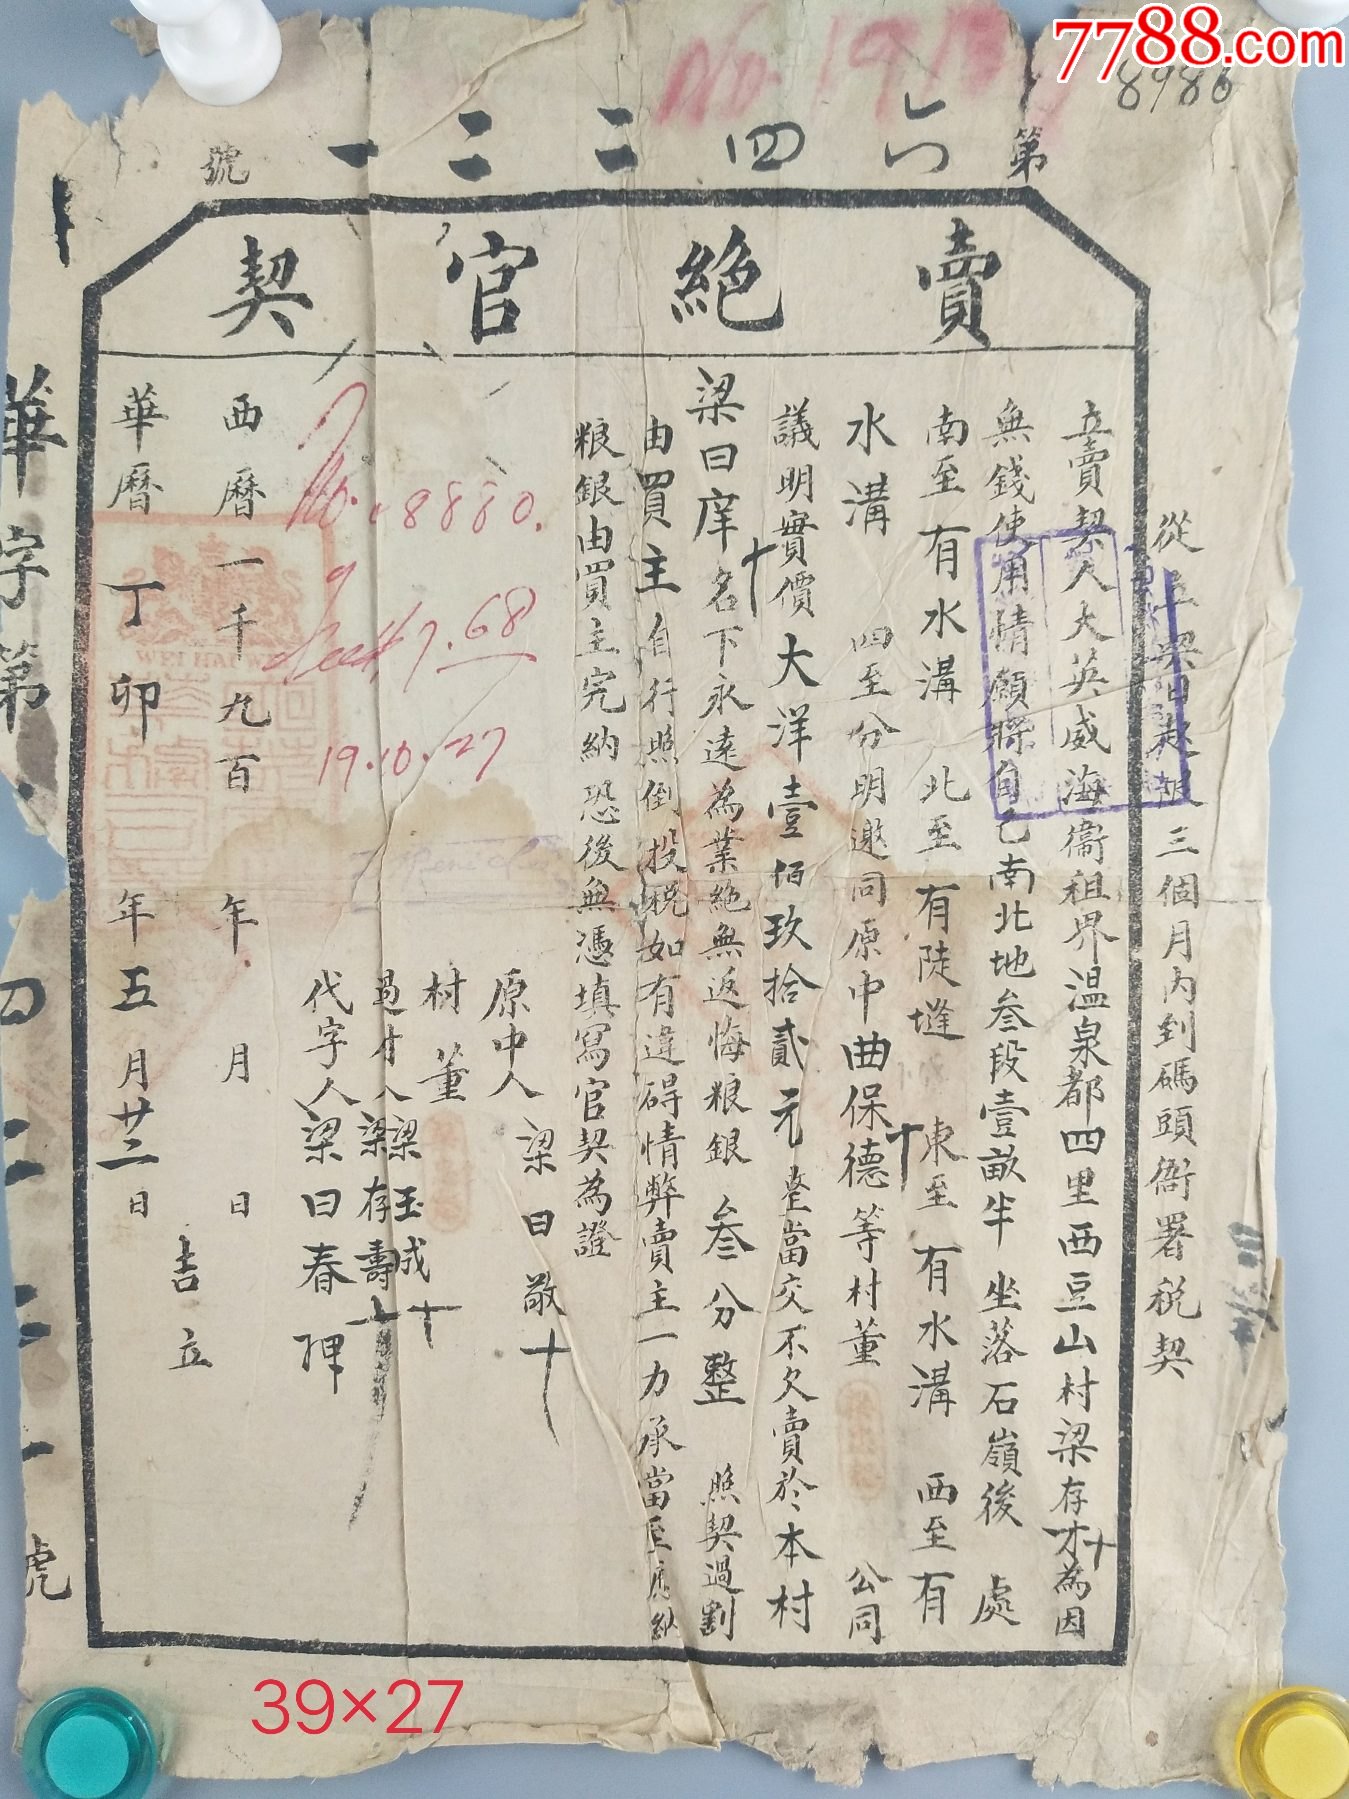 7788.com
8986
第六四二二一號
賣絕官契
從立契日起限三個月內到碼頭衙署稅契
立賣契人大英威海衞租界温泉都四里西豆山村梁存才十為因
無錢使用情願將自己南北地叁段壹畝半 坐落石嶺後 處
南至有水溝 北至有陡墶 東至有水溝 西至有
水溝 四至分明邀同原中曲保德十等村董 公同
議明實價大洋壹佰玖拾貳元整當交不欠賣於本村
梁曰庠十名下永遠為業絕無返悔粮銀 叁分整 照契過割
由買主自行照倒投稅如有違碍情弊賣主一力承當至應納
粮銀由買主完納恐後無憑填寫官契為證
原中人 梁曰敬十
村董
過付人 梁玉成十 梁存壽十
代字人 梁曰春押
No. 18880.
7.68
19.10.27
西曆一千九百 年 月 日
華曆 丁卯 年 五 月 廿二 日
吉立
WEI HAI WEI
華字第
四二二一號
39×27